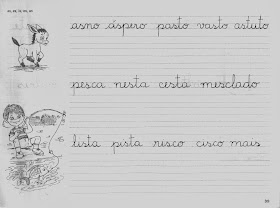 as, es, is, os, us
asno áspero pasto vasto astuto
pesca nesta cesta mesclado
lista pista risco cisco mais